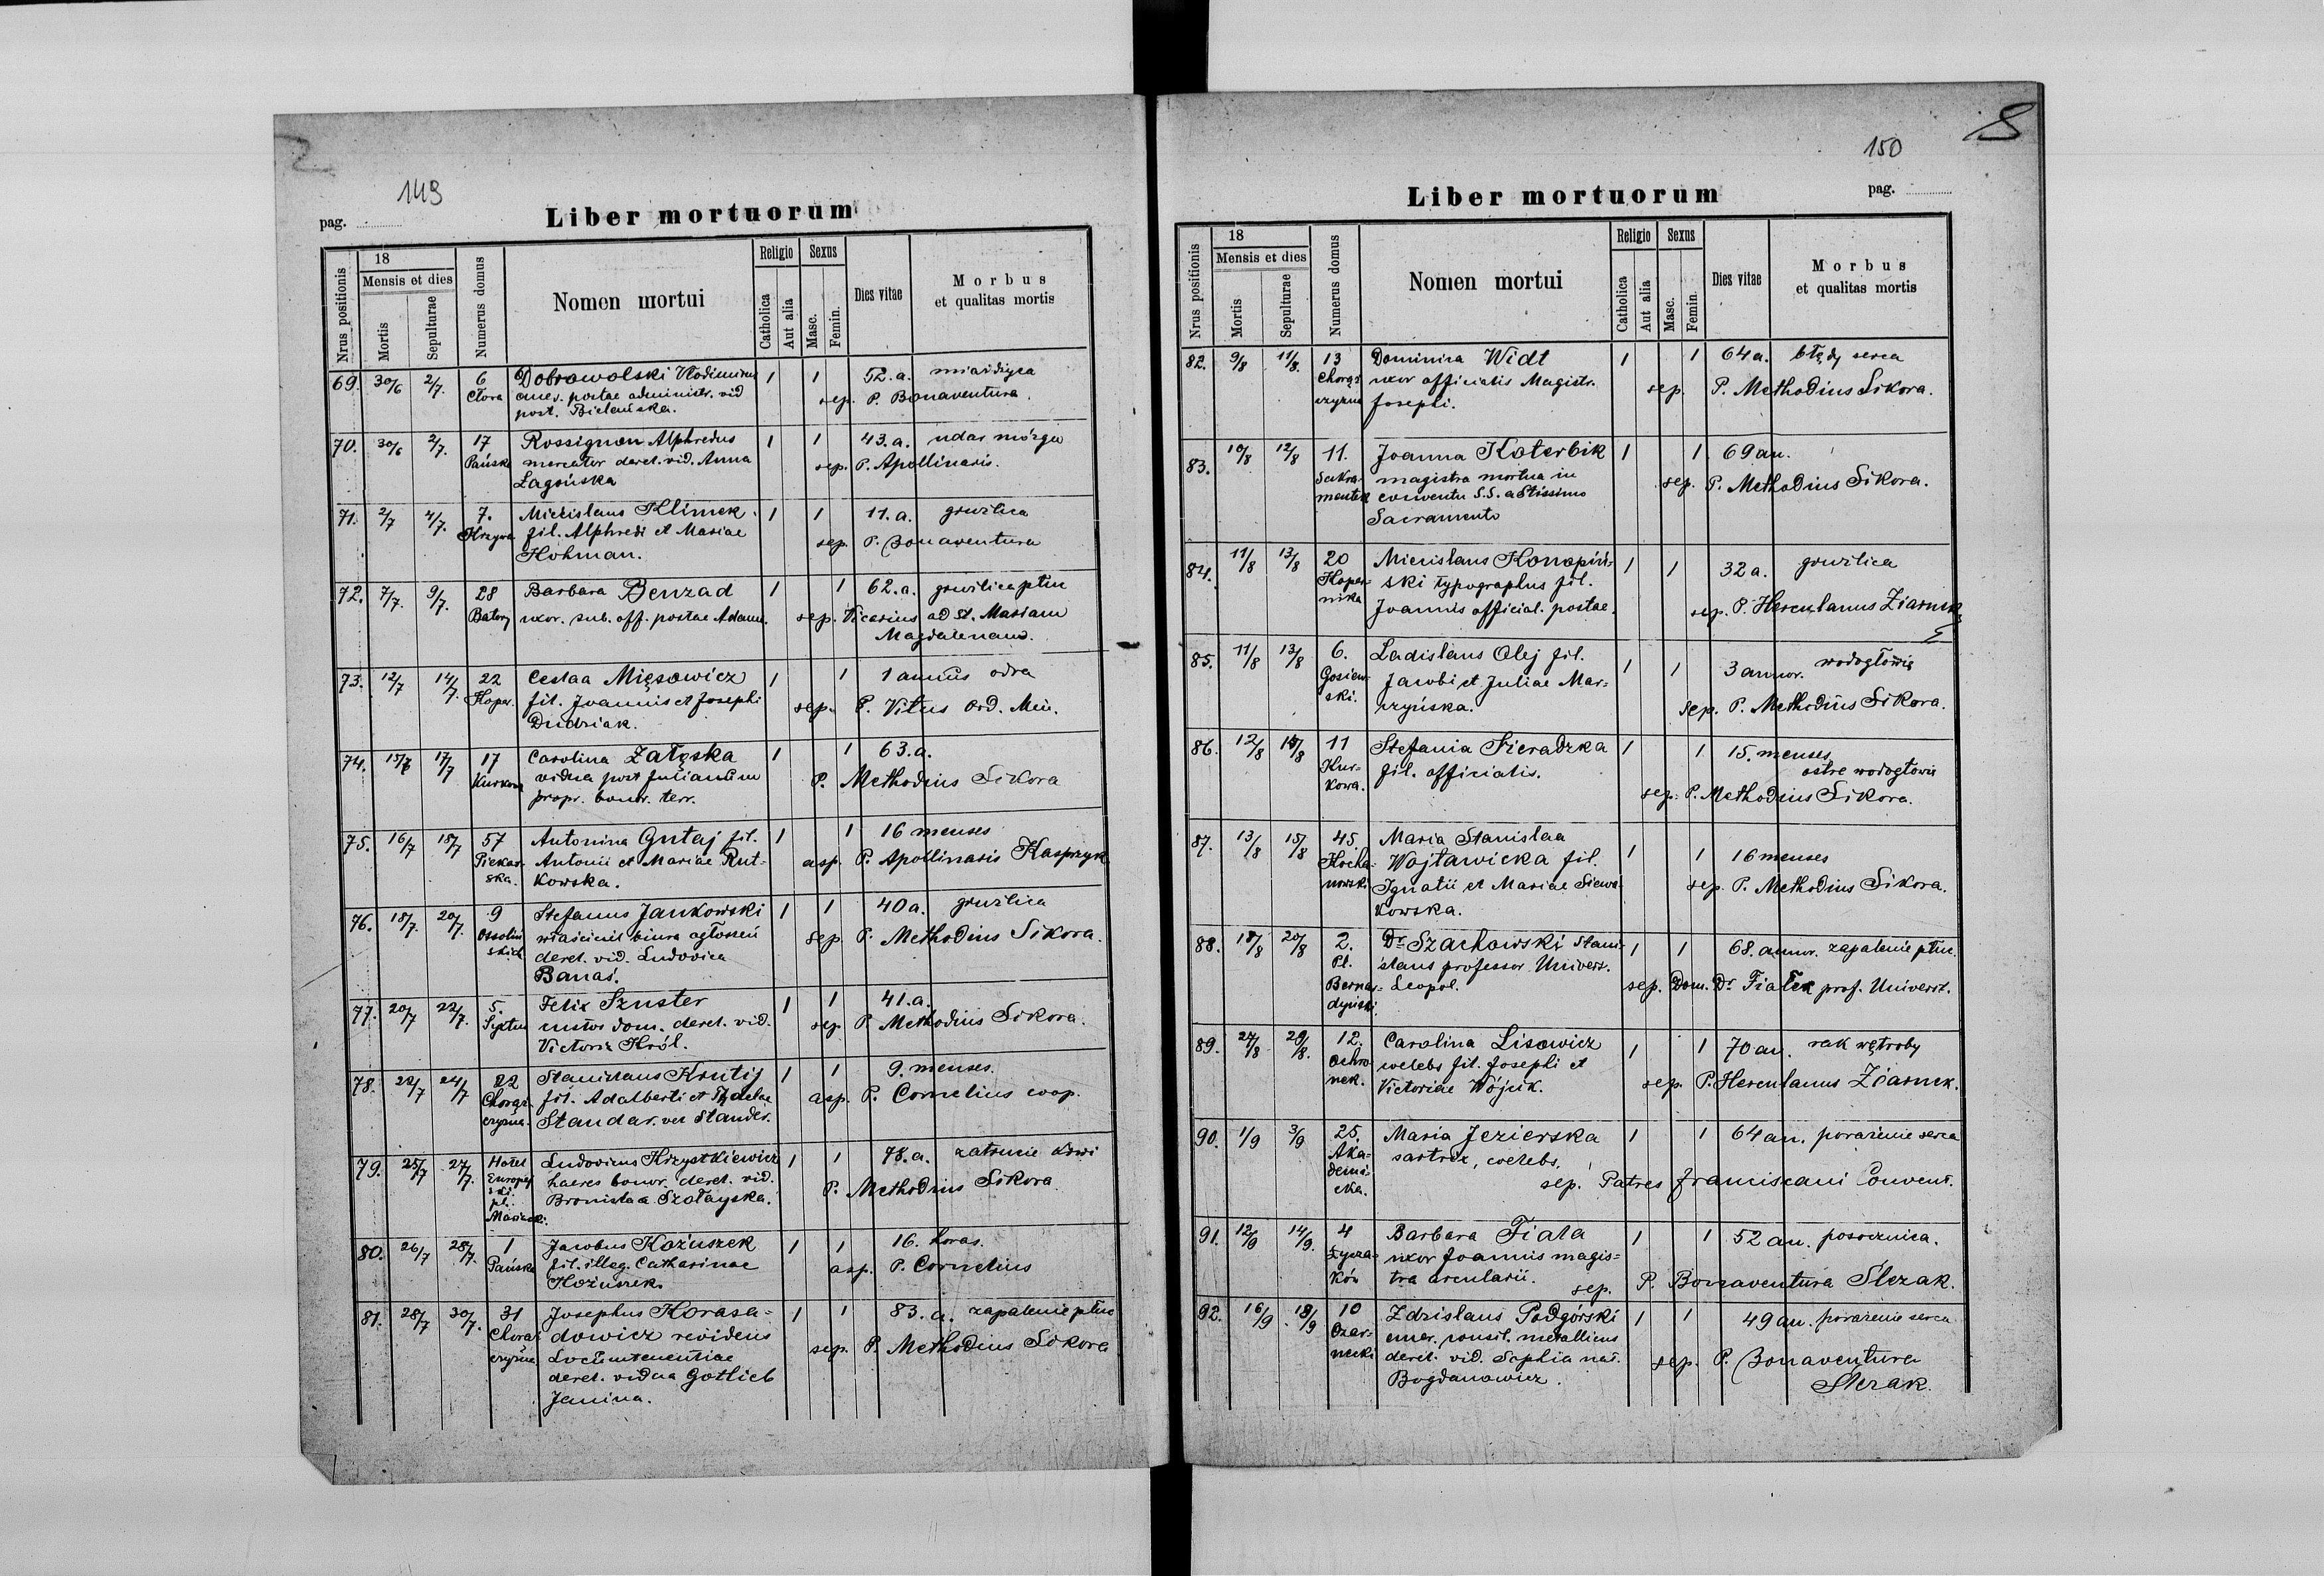 149
pag.
Liber mortuorum
Nrus positionis
18
Mensis et dies
Mortis
Sepulturae
Numerus domus
Nomen mortui
Religio
Catholica
Aut alia
Sexus
Masc.
Femin.
Dies vitae
Morbus
et qualitas mortis
69. 30/6 2/7. 6 Dobrowolski Wlodimirus 1 1 52.a. miażdżyca
emer. postae administr. vid sep. P. Bonaventura.
post. Bielańska.
70. 30/6 2/7. 17 Rossignon Alphredus 1 1 43.a. udar mózgu
Pańska mercator derel. vid. Anna sep. P. Apollinaris.
Łagońska
71. 2/7 4/7. 7. Miecislaus Klimek 1 1 11.a. gruźlica
Krzywa fil. Alphredi et Mariae sep. P. Bonaventura
Hohman.
72. 7/7. 9/7. 28 Barbara Benzad 1 1 62.a. gruźlica płuc
Batory uxor. sub. off. postae Adami. sep. Vicarius ad St. Mariam
Magdalenam.
73. 12/7 14/7. 22 Ceslaa Mięsowicz 1 1 1 annus odra
Koper. fil. Joannis et Josephi sep. P. Vitus Ord. Min.
Dudziak.
74. 15/7 17/7 17 Carolina Załęska 1 1 63.a.
Kurkowa vidua post Julianum P. Methodius Sikora
propr. bonor. terr.
75. 16/7 18/7 57 Antonina Gutaj fil. 1 1 16 menses
Piekar- Antonii et Mariae Rut- asp. P. Apollinaris Kasprzyk
ska. kowska.
76. 18/7. 20/7. 9 Stefanus Jankowski 1 1 40a. gruźlica
Ossoliń właściciel biura ogłoszeń sep. P. Methodius Sikora.
skich derel. vid. Ludovica
Banaś.
77. 20/7 22/7. 5. Felix Szuster 1 1 41.a.
custos dom. derel. vid. sep. P. Methodius Sikora.
Victoria Król.
78. 22/7 24/7 22 Stanislaus Krutij 1 1 9. menses.
Chorąż- fil. Adalberti et Theclae asp. P. Cornelius coop.
czyzna. Standar. vel Stander.
79. 25/7 27/7. Hotel Ludovicus Krzystkiewicz 1 1 78.a. zatrucie krwi
Europej haeres bonor. derel. vid. P. Methodius Sikora
ski. Bronislaa Szołayska.
pl.
Mariacki.
80. 26/7 28/7. 1 Jacobus Kożuszek 1 1 16. horas.
Pańska fil. illeg. Catharinae asp. P. Cornelius
Kożuszek.
81. 28/7 30/7. 31 Josephus Korasa- 1 1 83.a. zapalenie płuc
Chorąż dowicz revidens sep. P. Methodius Sikora
czyzna Locumtenentiae
derel. vidua Gotlieb
Janina.
150
pag.
Liber mortuorum
Nrus positionis
18
Mensis et dies
Mortis
Sepulturae
Numerus domus
Nomen mortui
Religio
Catholica
Aut alia
Sexus
Masc.
Femin.
Dies vitae
Morbus
et qualitas mortis
82. 9/8 11/8. 13 Dominica Widt 1 1 64a. błędy serca
Chorąż uxor officialis Magistr. sep. P. Methodius Sikora.
czyzna Josephi.
83. 10/8 12/8 11. Joanna Koterbik 1 1 69an.
Sakra- magistra mortua in sep. P. Methodius Sikora.
mentek conventu S.S. altissimo
Sacramento
84. 11/8 13/8 20 Miecislaus Konopiń- 1 1 32a. gruźlica
Koper- ski typographus fil.
nika Joannis official. postae. sep. P. Herculanus Ziarnek
85. 11/8 13/8 6. Ladislaus Olej fil. 1 1 3 annor. wodogłowie
Gosiew- Jacobi et Juliae Mar-
ski. czyńska. sep. P. Methodius Sikora.
86. 12/8 11 Stefania Sieradzka 1 1 15. menses
Kur- fil. officialis. ostre wodogłowie
kowa. sep. P. Methodius Sikora.
87. 13/8 15/8 45. Maria Stanislaa
Kocha- Wojtawicka fil. 1 1 16 menses
nowski Ignatii et Mariae sep. P. Methodius Sikora.
kowska.
88. 18/8 20/8 2. Dr Szachowski Stani- 1 1 68. annor. zapalenie płuc.
Pl. slaus professor Univers.
Bernar- Leopol. sep. Dom. Dr Fiałek prof. Universt.
dyński.
89. 27/8 29/8. 12. Carolina Lisowicz 1 1 70an. rak wątroby
Ochro- coelebs fil. Josephi et sep. P. Herculanus Ziarnek.
nek. Victoriae Wójcik.
90. 1/9 3/9 25. Maria Jezierska 1 1 64an. porażenie serca
Aka- sartrix, coelebs,
demi- sep. Patres franciscani Convent.
cka.
91. 12/9 14/9. 4 Barbara Fiala 1 1 52an. posocznica.
Łycza- uxor Joannis magis-
ków tra arcularii. sep. P. Bonaventura Ślczak.
92. 16/9 18/9 10 Zdzislaus Podgórski 1 1 49an. porażenie serca
Czar- emer. consil. metallicus
necki derel. vid. Sophia nat. sep. P. Bonaventura
Bogdanowicz. Ślczak.